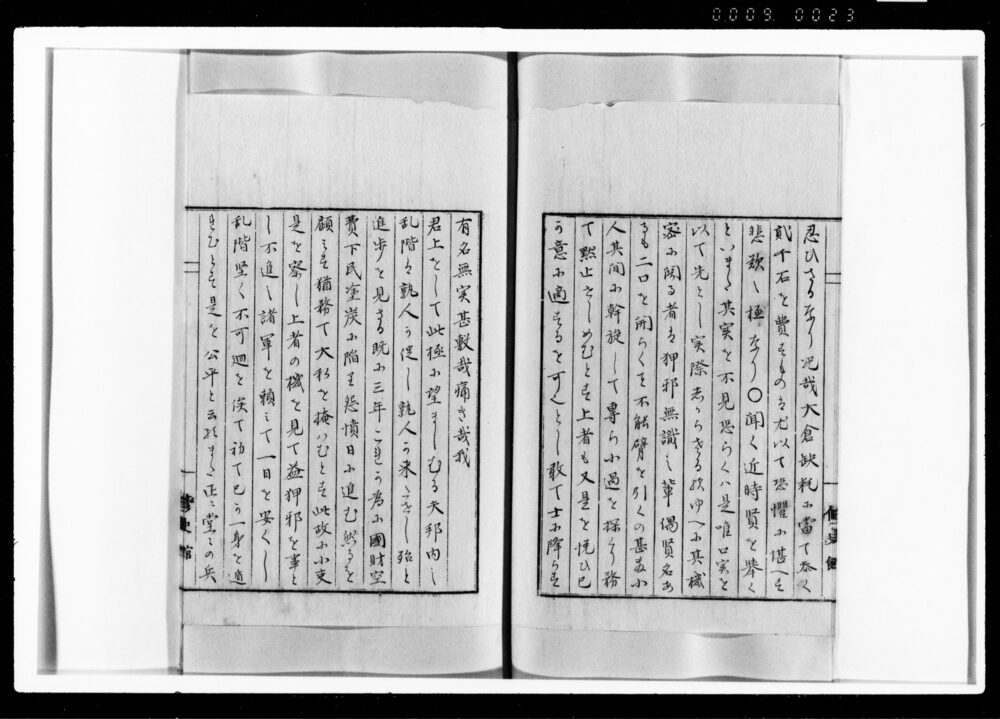 0.009. 0023
忍ひさる所なり况哉大倉缺耗ニ當て忝く
貳千石を費すものは尤以て恐懼ニ堪へす
悲歎之極なり〇聞く近時賢を挙く
といへとも其実を不見恐らくハ是唯口実を
以て先とし実際あらさる故ゆへに其機
密ニ関る者は狎邪無識之輩偶賢名あ
るも一口を開らくを不能臂を引くの甚敷ニ
人其間ニ幹旋して専ら小過を探くり務
て黙止せしめむとす上者も又是を悦ひ己
か意ニ適するを可人とし敢て士ニ降らす
有名無実甚敷哉痛き哉我
君上をして此極ニ望ましむる夫邦内之
乱階は孰人か促し孰人か来たさし殆と
進歩を見さる既ニ三年これか為ニ國財空
費下民塗炭ニ陥り怨憤日ニ進む然るを
顧みす猶務て大形を掩ハむとす此故ニ吏
是を察し上者の機を見て益狎邪を事と
し不進之諸軍を頼ミて一日を安くし
乱階堅く不可廻を俟て初て己か一身を遁
れむとす是を公平と云難また正々堂々の兵
修史館